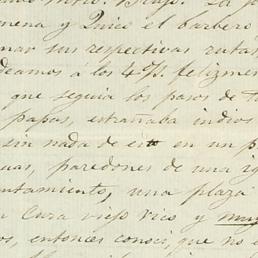 mena y Quico el barbero
mar sus respectivas rutas
deamos á los 4 p. felizmen
que seguia los pasos de t
papas, estrañaba indios
sin nada de esto en un p
uas, paredones de una ig
untamiento, una plaza
n Cura viejo rico y muy
os, entonces conoci, que no e